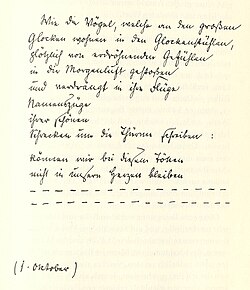 Wie die Vögel, welche an den großen
Glocken wohnen in den Glockenstühlen,
plötzlich von erdröhnenden Gefühlen
in die Morgenluft gestoßen
und verdrängt in ihre Flüge
Namenszüge
ihrer schönen
Schrecken um die Türme schreiben:
können wir bei diesem Tönen
nicht in unsern Herzen bleiben
(1. Oktober)